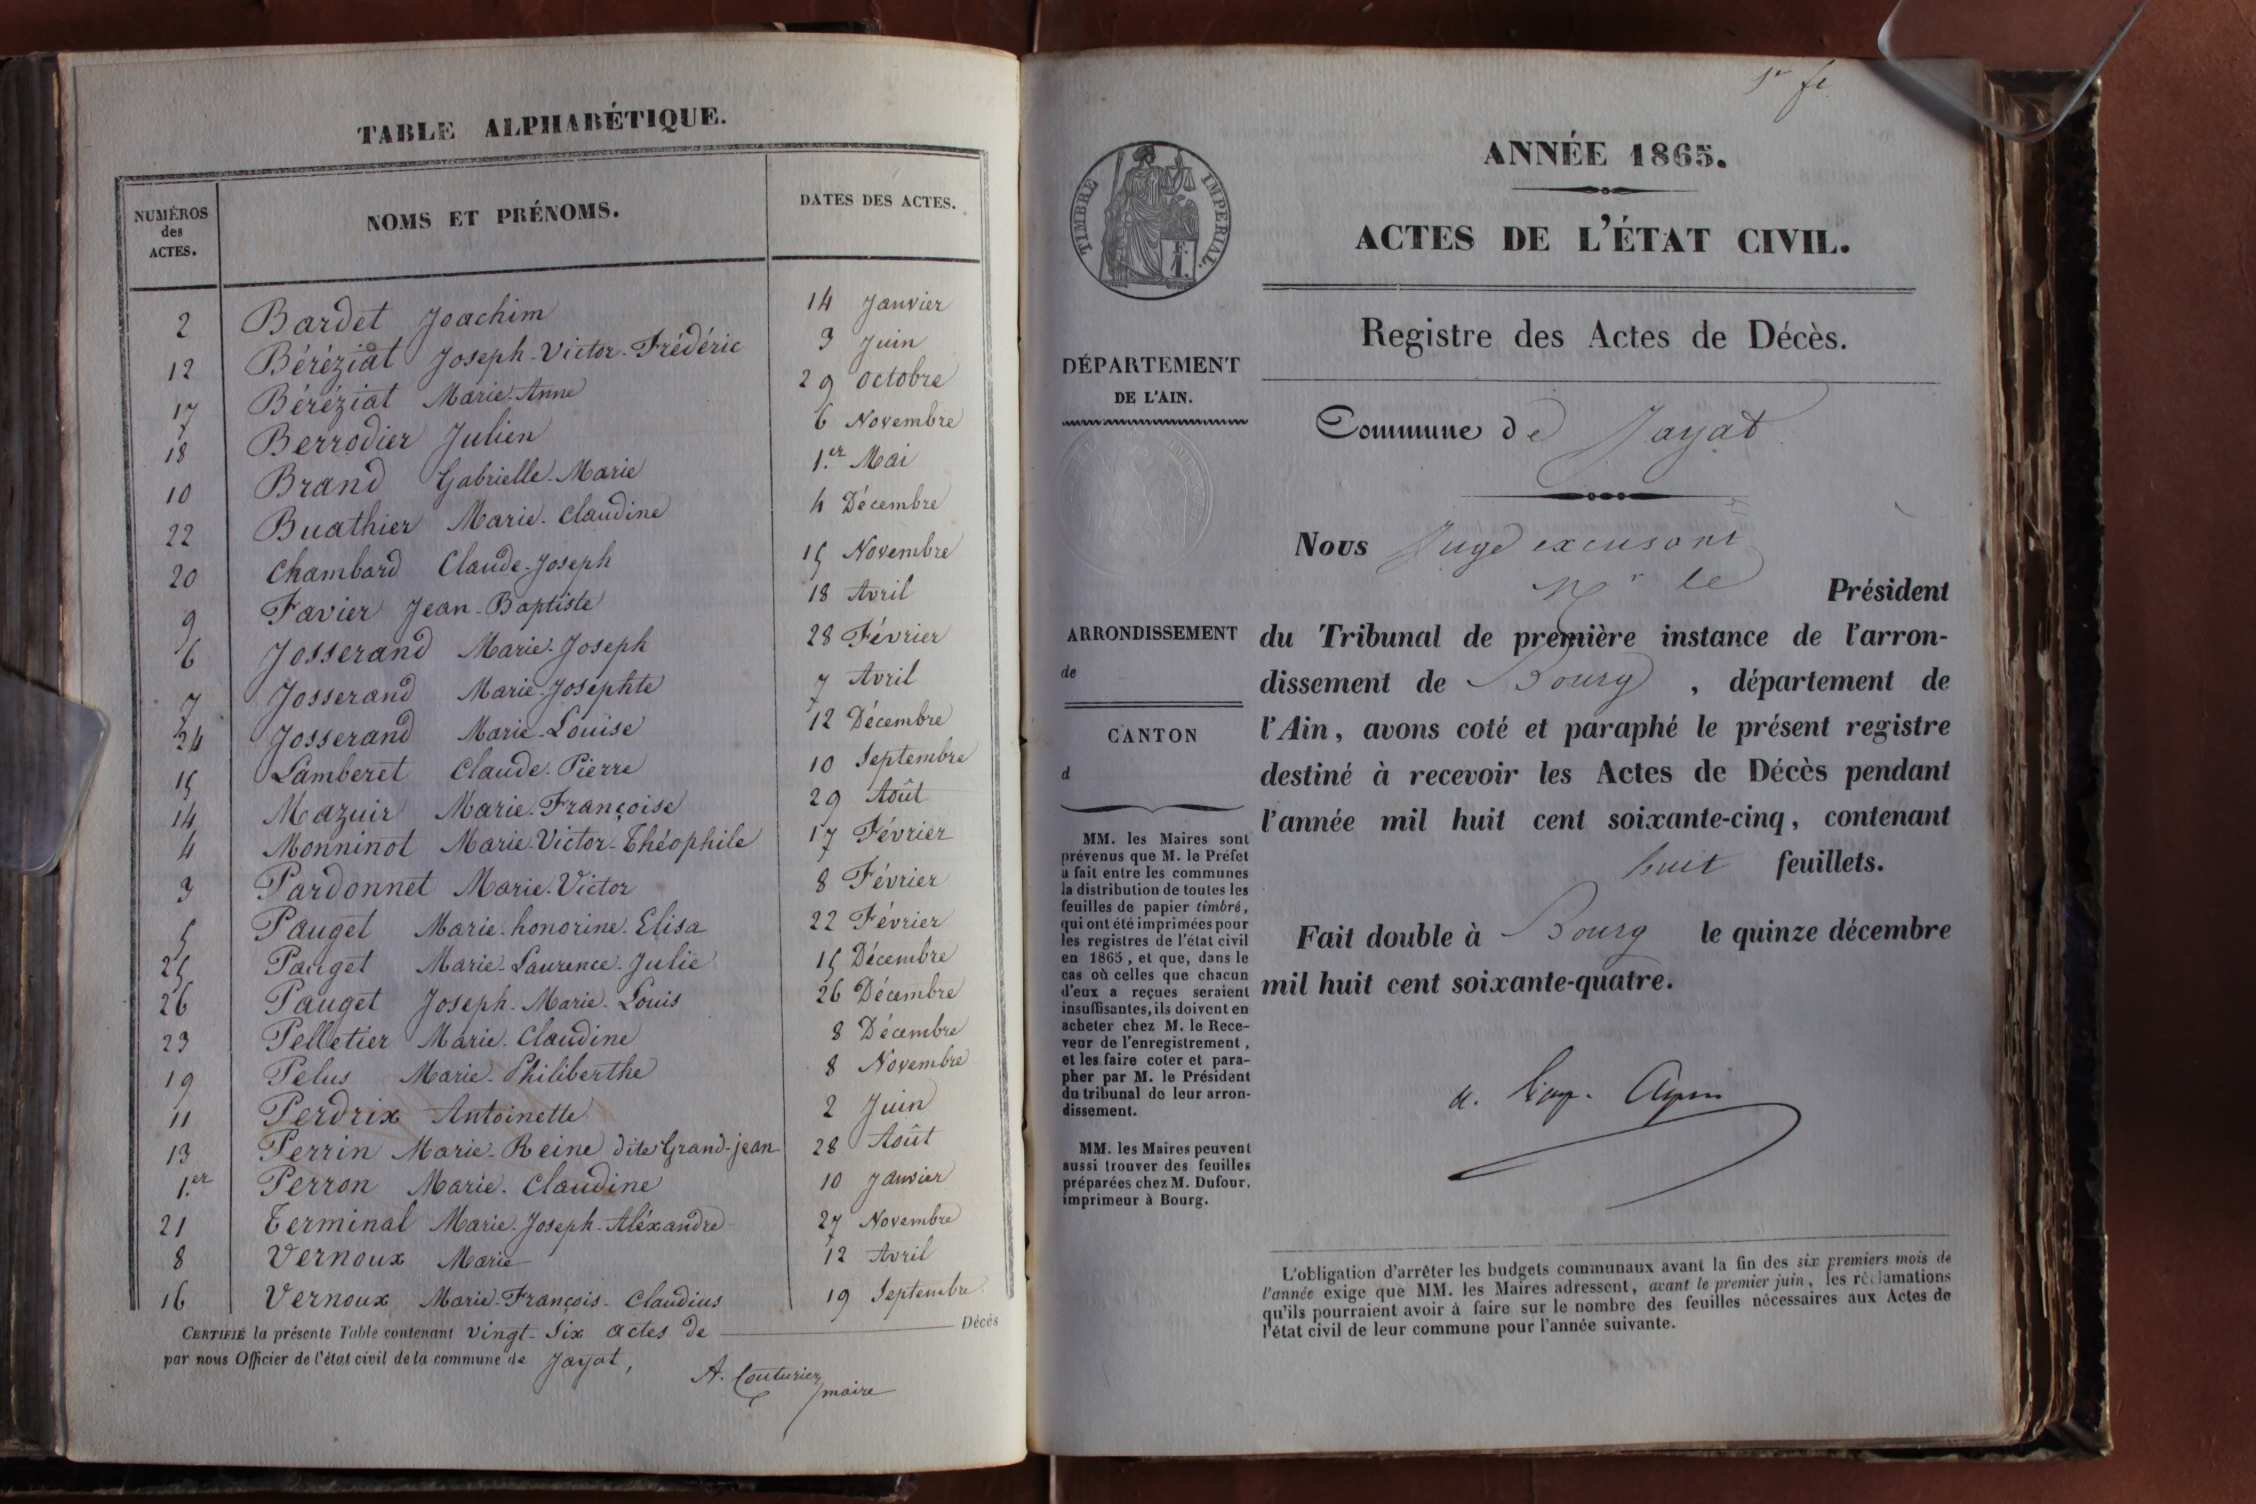 TABLE ALPHABÉTIQUE.
NUMÉROS des ACTES. NOMS ET PRÉNOMS. DATES DES ACTES.
2 Bardet Joachim 14 Janvier
12 Béréziat Joseph-Victor-Frédéric 3 Juin
17 Béréziat Marie-Anne 29 Octobre
18 Berrodier Julien 6 Novembre
10 Brand Gabrielle-Marie 1.er Mai
22 Buathier Marie-Claudine 4 Décembre
20 Chambard Claude-Joseph 15 Novembre
9 Favier Jean-Baptiste 18 Avril
6 Josserand Marie-Joseph 28 Février
7 Josserand Marie-Josephte 7 Avril
24 Josserand Marie-Louise 12 Décembre
15 Lamberet Claude-Pierre 10 Septembre
14 Mazuir Marie-Françoise 29 Août
4 Monninot Marie-Victor-Théophile 17 Février
3 Pardonnet Marie-Victor 8 Février
5 Pauget Marie-honorine-Elisa 22 Février
25 Pauget Marie-Laurence-Julie 15 Décembre
26 Pauget Joseph-Marie-Louis 26 Décembre
23 Pelletier Marie-Claudine 8 Décembre
19 Pelus Marie-Philiberthe 8 Novembre
11 Perdrix Antoinette 2 Juin
13 Perrin Marie-Reine dite Grand-jean 28 Août
1.er Perron Marie-Claudine 10 Janvier
21 Terminal Marie-Joseph-Aléxandre 27 Novembre
8 Vernoux Marie 12 Avril
16 Vernoux Marie-François-Claudius 19 Septembre
CERTIFIÉ la présente Table contenant vingt-six actes de Décès
par nous Officier de l'état civil de la commune de Jayat,
A. Couturier
maire
1er f.t
ANNÉE 1865.
TIMBRE IMPERIAL.
F.
1.
ACTES DE L'ÉTAT CIVIL.
Registre des Actes de Décès.
DÉPARTEMENT
DE L'AIN.
Commune de Jayat
Nous Juge excusant
Mr le Président
ARRONDISSEMENT
de
CANTON
d
du Tribunal de première instance de l'arron-
dissement de Bourg, département de
l'Ain, avons coté et paraphé le présent registre
destiné à recevoir les Actes de Décès pendant
l'année mil huit cent soixante-cinq, contenant
huit feuillets.
Fait double à Bourg le quinze décembre
mil huit cent soixante-quatre.
MM. les Maires sont
prévenus que M. le Préfet
a fait entre les communes
la distribution de toutes les
feuilles de papier timbré,
qui ont été imprimées pour
les registres de l'état civil
en 1865, et que, dans le
cas où celles que chacun
d'eux a reçues seraient
insuffisantes, ils doivent en
acheter chez M. le Rece-
veur de l'enregistrement,
et les faire coter et para-
pher par M. le Président
du tribunal de leur arron-
dissement.
MM. les Maires peuvent
aussi trouver des feuilles
préparées chez M. Dufour,
imprimeur à Bourg.
L'obligation d'arrêter les budgets communaux avant la fin des six premiers mois de
l'année exige que MM. les Maires adressent, avant le premier juin, les réclamations
qu'ils pourraient avoir à faire sur le nombre des feuilles nécessaires aux Actes de
l'état civil de leur commune pour l'année suivante.